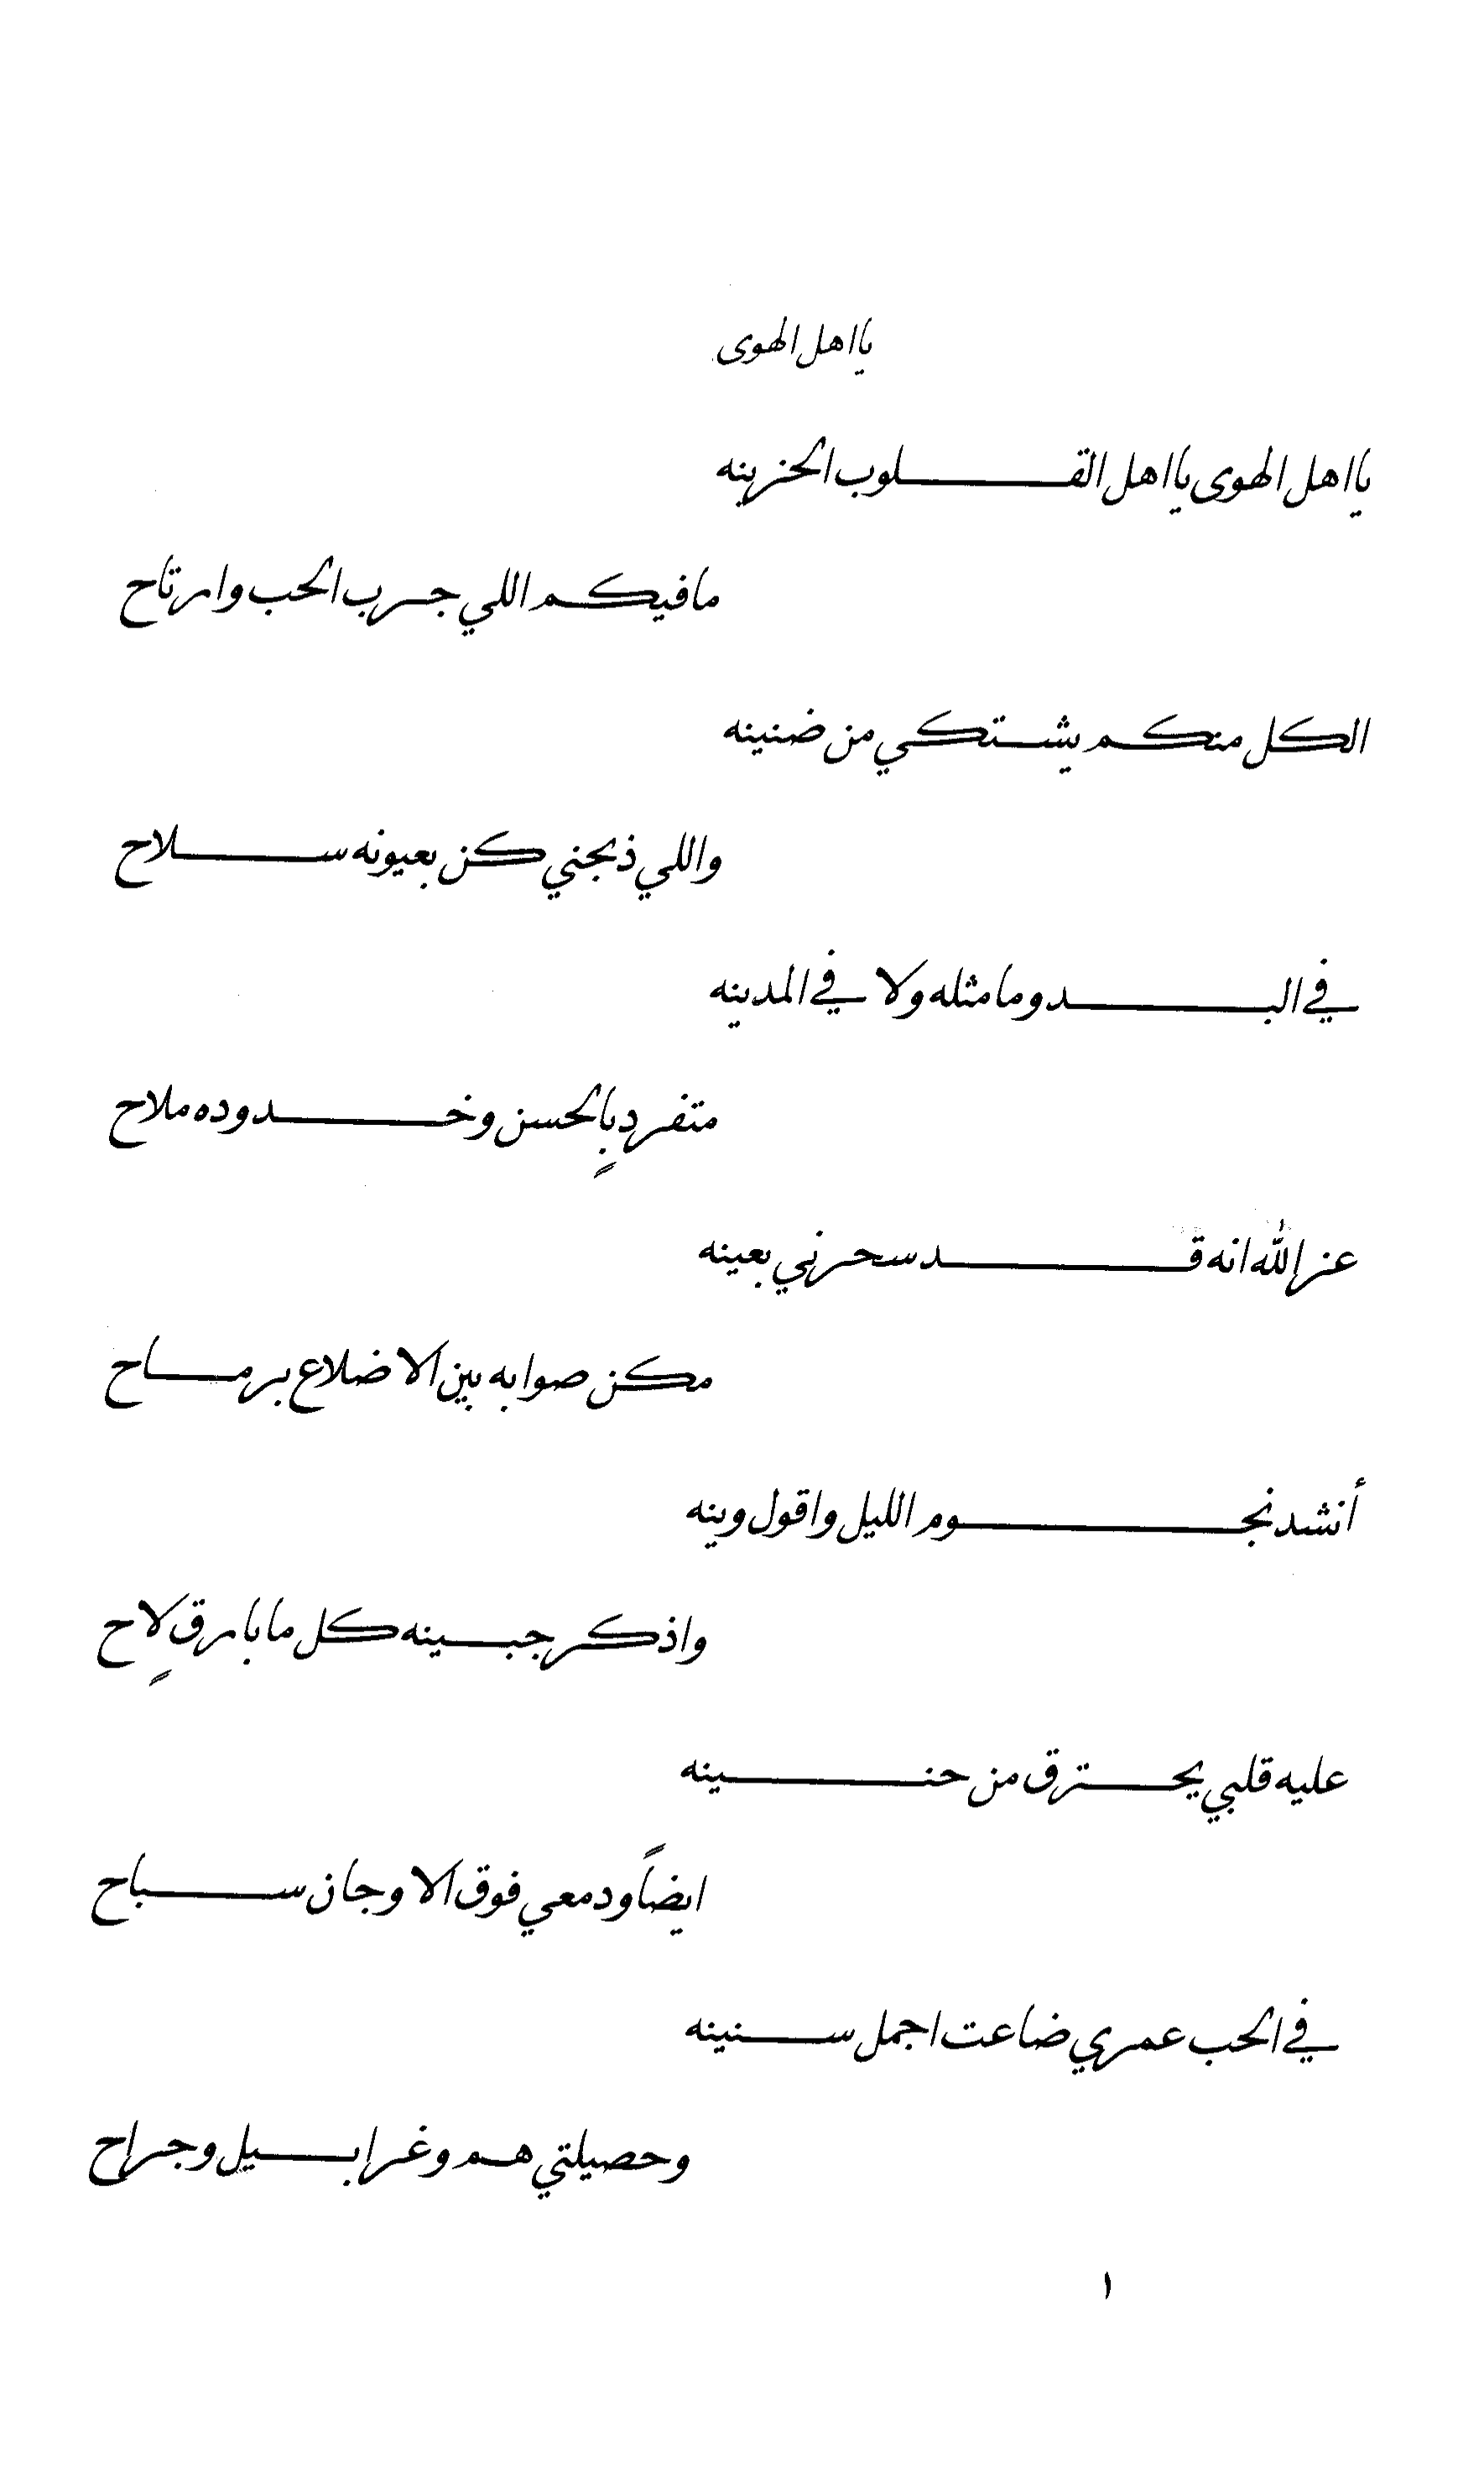 يا اهل الهوى
يا اهل الهوى يا اهل القلوب الحزينه
ما فيكم اللي جرب الحب وارتاح
الكل منكم يشتكي من ضنينه
واللي ذبحني كن بعيونه سلاح
في البدو ما مثله ولا في المدينه
متفردٍ بالحسن وخدوده ملاح
عز الله انه قد سحرني بعينه
مكن صوابه بين الاضلاع برماح
أنشد نجوم الليل واقول وينه
واذكر جبينه كل ما بارقٍ لاح
عليه قلبي يحترق من حنينه
ايضاً ودمعي فوق الاوجان سباح
في الحب عمري ضاعت اجمل سنينه
وحصيلتي هم وغرابيل وجراح
١